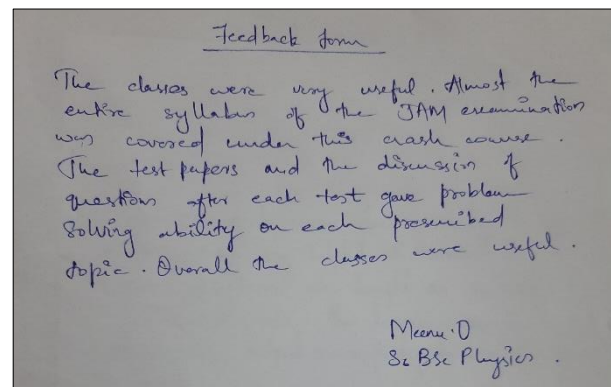 Feedback form
The classes were very useful. Almost the
entire syllabus of the JAM examination
was covered under this crash course.
The test papers and the discussion of
questions after each test gave problem
solving ability on each prescribed
topic. Overall the classes were useful.
Meenu.D
BSc Physics.